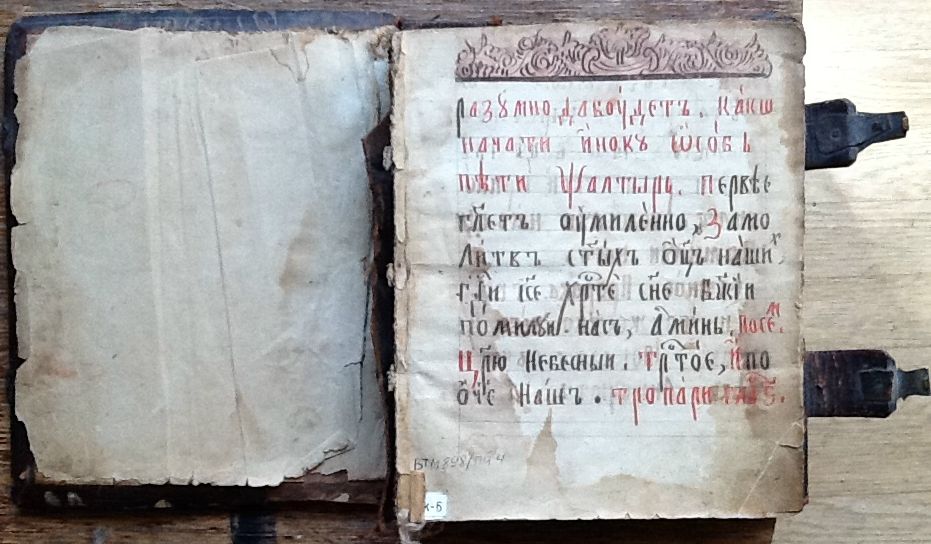 разꙋмно да бꙋ́детъ. ка́кѡ
нача́ти и҆́нокꙋ ѡ҆со́бь
пѣ́ти ѱалты́рь. первѣе
гл҃етъ ᲂу҆миле́нно, За мо
ли́твъ ст҃ы́хъ ѻ҆ц҃ъ на́ших
гд҃и і҆с҃е хр҇те́ сн҃е бж҃і́и
поми́лꙋи на́съ, а҆ми́нь. посе́м.
Цр҃ю̀ Небесныи. тр҇то́е, и҆ по
ѻ҆́ч҃е На́шъ. тропарѝ гла́с
БТМ 898/
К-Б